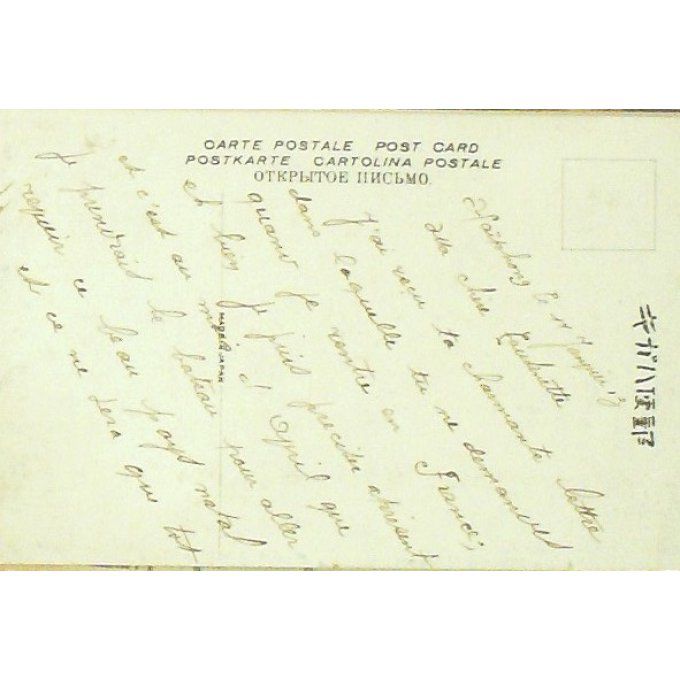 CARTE POSTALE POST CARD
POSTKARTE CARTOLINA POSTALE
ОТКРЫТОЕ ПИСЬМО.
MADE IN JAPAN
Haïphong le 17 Janvier 13
Ma chère
J'ai reçu ta charmante lettre
dans laquelle tu me demandes
quand je rentre en France;
et bien je puis préciser
c'est au mois d'Avril que
je prendrais le bateau pour aller
revoir ce beau pays natal
et ce ne sera que tot